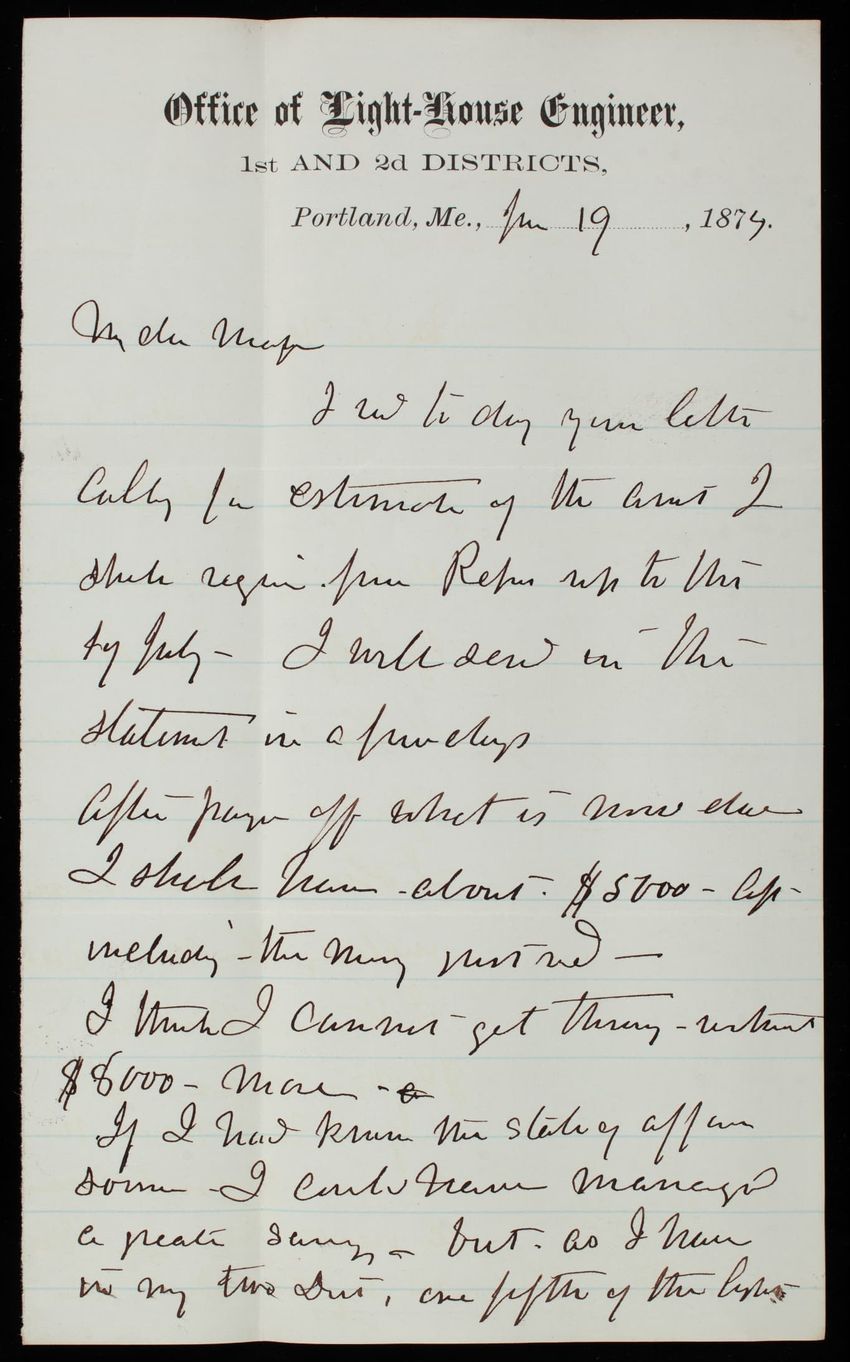 Office of Light-House Engineer,
1st AND 2d DISTRICTS,
Portland, Me., Jan 19, 1874.
My dear Major
I recd to day your letter
Calling for estimate of the amt I
shall require from Repair up to the
of July – I will send in the
statement in a few days
After paying off what is now due
I shall have about $5000 –
including the money just recd —
I think I cannot get through without
$8000 – more
If I had known the state of affairs
sooner – I could have managed
a greater saving – but as I have
in my two Dist, one fifth of the lights